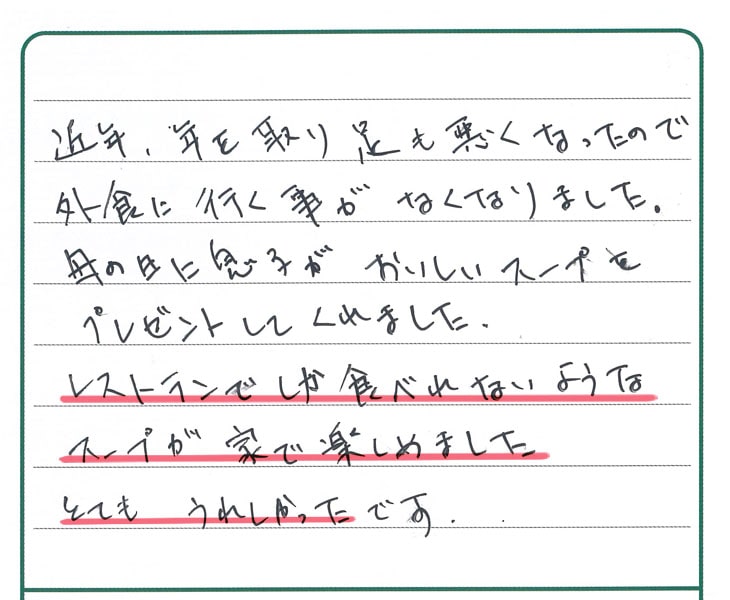 近年、年を取り足も悪くなったので
外食に行く事がなくなりました。
母の日に息子がおいしいスープを
プレゼントしてくれました.
レストランでしか食べれないような
スープが家で楽しめました
とてもうれしかったです.